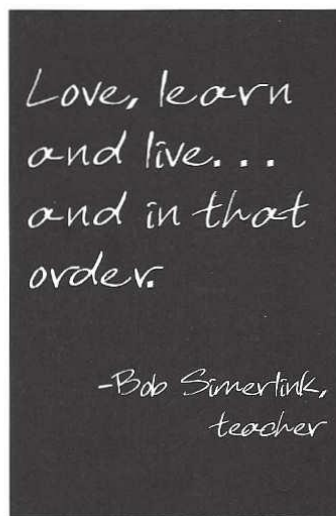 Love, learn
and live...
and in that
order.
-Bob Simerlink,
teacher